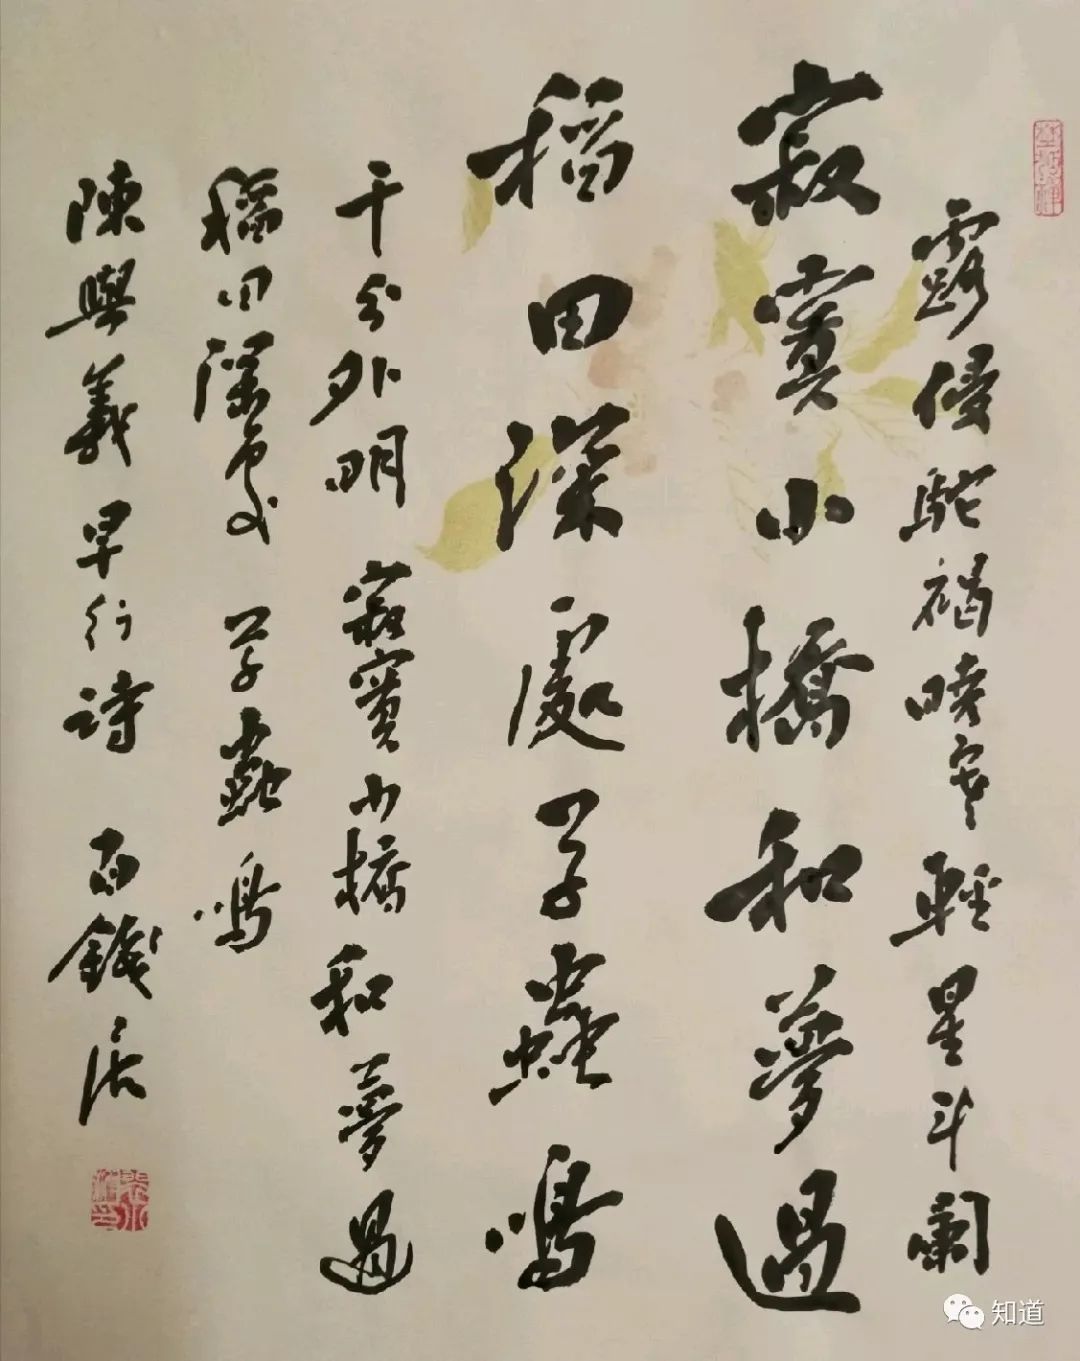 露侵駝褐曉寒輕星斗闌
寂寞小橋和夢過
稻田深處草蟲鳴
干分外明寂寞小橋和夢過
稻田深處草蟲鳴
陳與義早行詩
知道